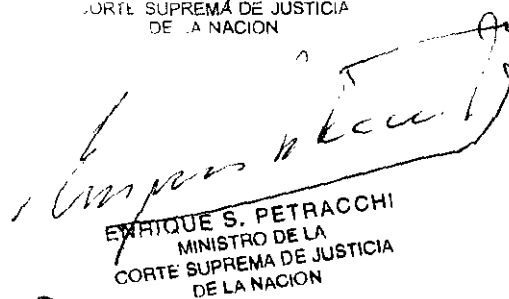 CORTE SUPREMA DE JUSTICIA
DE LA NACION
ENRIQUE S. PETRACCHI
MINISTRO DE LA
CORTE SUPREMA DE JUSTICIA
DE LA NACION